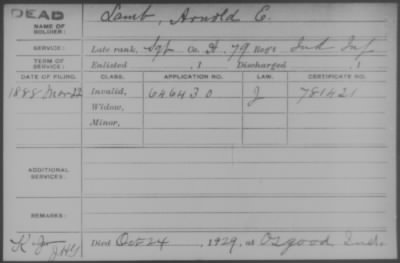 DEAD
NAME OF SOLDIER: Lamb, Arnold E.
SERVICE: Late rank, Sgt Co. H, 79 Reg't Ind Inf
TERM OF SERVICE: Enlisted , 1 Discharged , 1
DATE OF FILING. CLASS. APPLICATION NO. LAW. CERTIFICATE NO.
1888 Mar 22 Invalid, 646430 J 781421
Widow,
Minor,
ADDITIONAL SERVICES:
REMARKS:
Died Oct 24, 1929, at Osgood Ind.